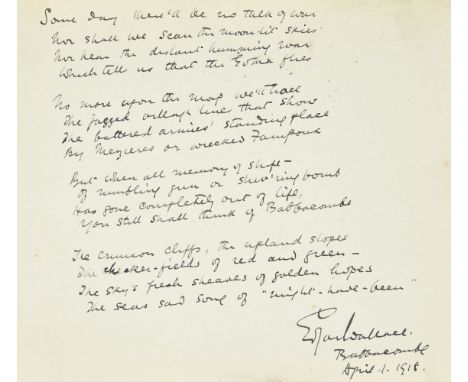 Some day there'll be no talk of war
Nor shall we scan the moonlit skies
Nor hear the distant humming roar
Which tell us that the Gotha flies
No more upon the map we'll trace
The jagged line that show
The battered armies' standing place
By Mezieres or wrecked
But when all memory of
Of rumbling gun or shiv'ring bomb
Has gone completely out of life,
You still shall think of Babbacombe
The crimson cliffs, the upland slopes
The checker-fields of red and green-
The sky's fresh sheaves of golden hopes
The seas sad song of "might-have-been"
Edgar Wallace.
Babbacombe
April 1. 1918.